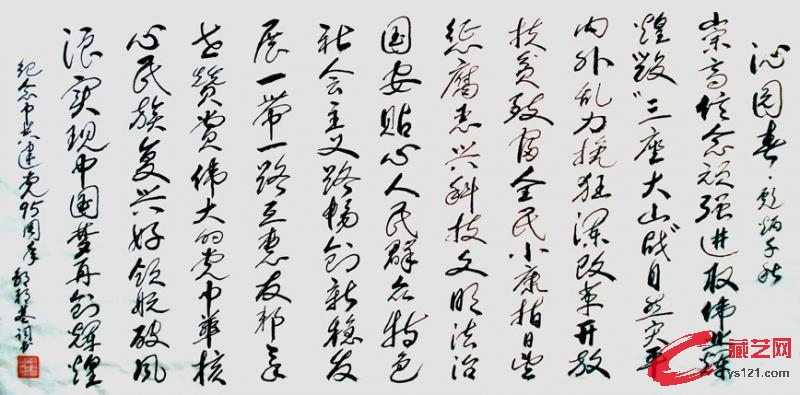 沁园春·彪炳千秋
崇高信念顽强进取伟业辉
煌毁"三座大山战自然灾平
内外乱力挽狂澜改革开放
扶贫致富全民小康指日
惩腐恶兴科技文明法治
国安贴心人民群众特色
社会主义路畅创新稳发
展一带一路互惠友邦举
世赞赏伟大的党中华核
心民族复兴好领航破风
浪实现中国梦再创辉煌
纪念中共建党95周年
藏艺网
ys121.com